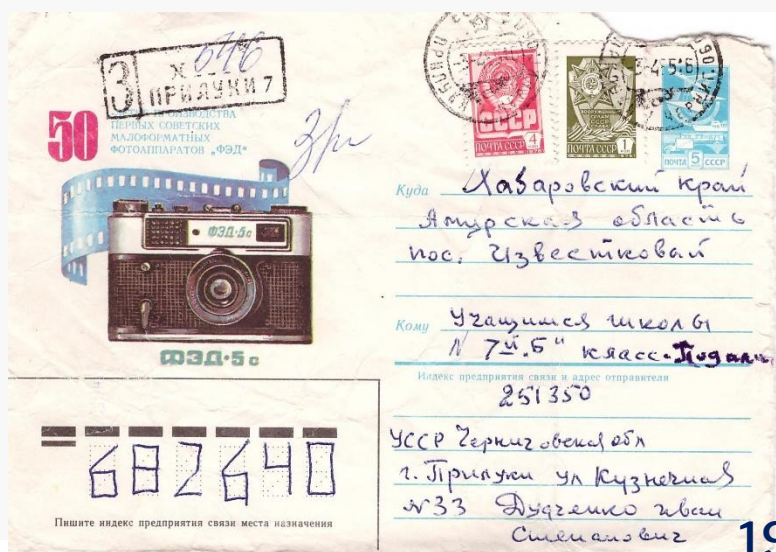 З
676
ПРИЛУКИ 7
50
ПРОИЗВОДСТВА
ПЕРВЫХ СОВЕТСКИХ
МАЛОФОРМАТНЫХ
ФОТОАППАРАТОВ „ФЭД"
ФЭД-5с
ФЭД·5с
СССР
4
ПОЧТА СССР
ПОЧТА СССР 1
ПОЧТА 5 СССР
Куда Хабаровский край
Амурская область
пос. Известковый
Кому Учащимся школы
N 7й „Б" класс
Индекс предприятия связи и адрес отправителя
251350
УССР Черниговская обл
г. Прилуки ул Кузнечная
N33 Дудченко Иван
Степанович
682640
Пишите индекс предприятия связи места назначения
19